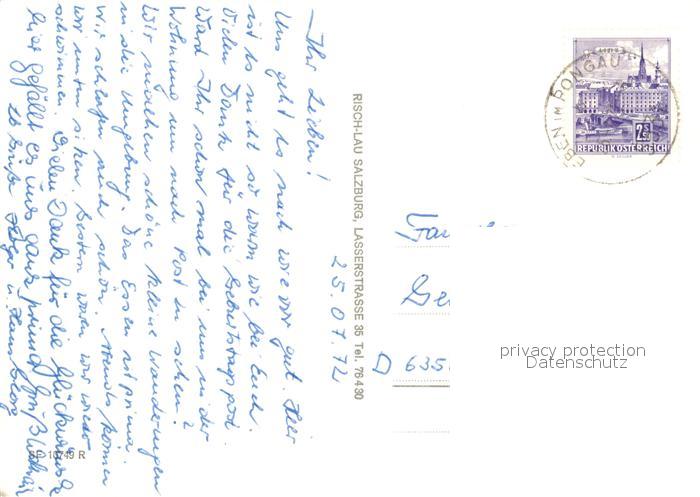 Ihr Lieben!
Uns geht es nach wie vor gut. Hier
ist es nicht so warm wie bei Euch.
Vielen Dank für die Geburtstagspost.
Ward Ihr schon mal bei uns in der
Wohnung um nach Post zu sehen?
Wir machen schöne kleine Wanderungen
in die Umgebung. Das Essen ist prima.
Wir schlafen auch schön. Abends können
wir unten sitzen. Gestern waren wir wieder
schwimmen. Vielen Dank für die Glückwünsche
hier gefällt es uns ganz prima
25.07.72
RISCH-LAU SALZBURG, LASSERSTRASSE 35 Tel. 76 4 30
SF 10749 R
EBEN IM PONGAU
2S50
REPUBLIK ÖSTERREICH
Fam
Ge
D 635
privacy protection
Datenschutz